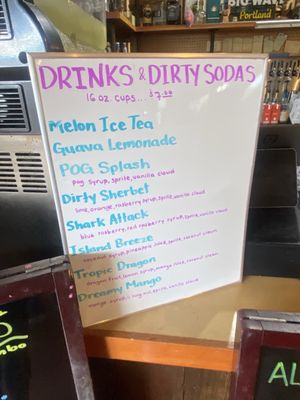 BIG WAVE
Portland
DRINKS & DIRTY SODAS
16 oz cups... $7.00
Melon Ice Tea
Guava Lemonade
POG Splash
pog syrup, sprite, vanilla cloud
Dirty Sherbet
lime, orange, rasberry syrup, sprite, vanilla cloud
Shark Attack
blue rasberry, red rasberry syrup, sprite, vanilla cloud
Island Breeze
coconut syrup, pineapple juice, sprite, coconut cream
Tropic Dragon
dragon fruit, lemon syrup, mango juice, coconut cream
Dreamy Mango
mango syrup, sprite, vanilla cloud
AL